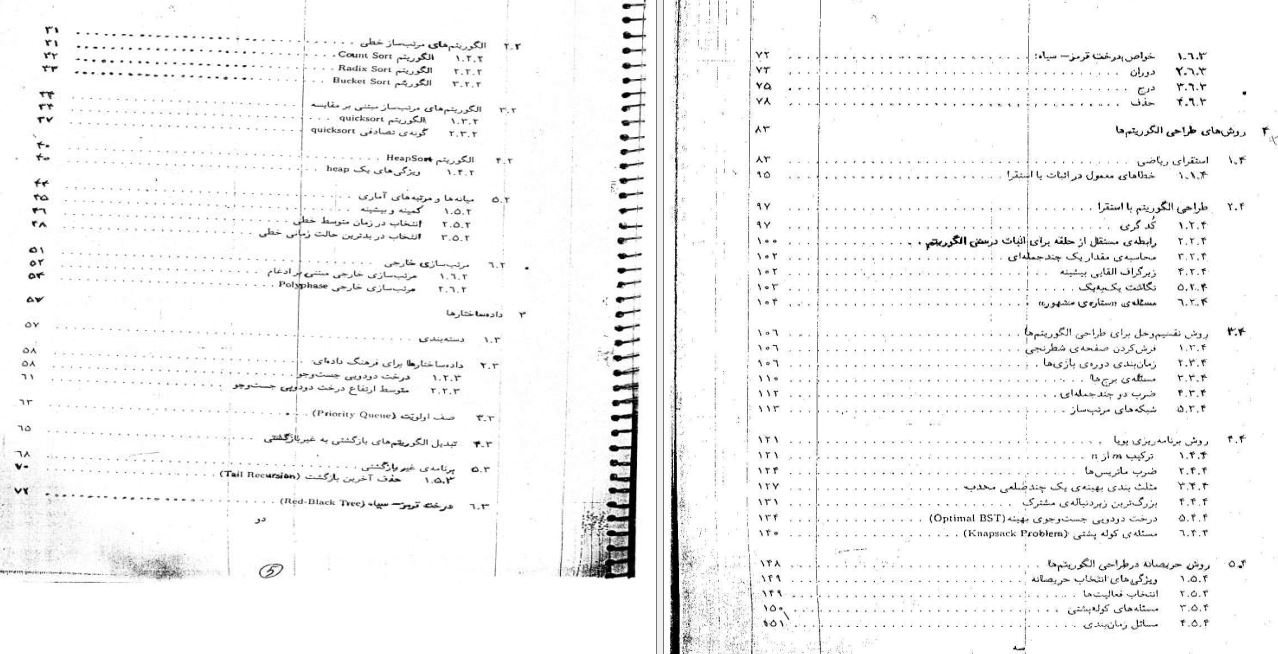 ۲.۲ الگوریتم‌های مرتب‌ساز خطی ۳۱
۱.۲.۲ الگوریتم Count Sort ۳۱
۲.۲.۲ الگوریتم Radix Sort ۳۲
۳.۲.۲ الگوریتم Bucket Sort ۳۳
۳.۲ الگوریتم‌های مرتب‌ساز مبتنی بر مقایسه ۳۴
۱.۳.۲ الگوریتم quicksort ۳۴
۲.۳.۲ گونه‌ی تصادفی quicksort ۳۷
۴.۲ الگوریتم HeapSort ۴۰
۱.۴.۲ ویژگی‌های یک heap ۴۰
۵.۲ میانه‌ها و مرتبه‌های آماری ۴۴
۱.۵.۲ کمینه و بیشینه ۴۵
۲.۵.۲ انتخاب در زمان متوسط خطی ۴۶
۳.۵.۲ انتخاب در بدترین حالت زمانی خطی ۴۸
۶.۲ مرتب‌سازی خارجی ۵۱
۱.۶.۲ مرتب‌سازی خارجی مبتنی بر ادغام ۵۲
۲.۶.۲ مرتب‌سازی خارجی Polyphase ۵۴
۳ داده‌ساختارها ۵۷
۱.۳ دسته‌بندی ۵۷
۲.۳ داده‌ساختارها برای فرهنگ داده‌ای ۵۸
۱.۲.۳ درخت دودویی جست‌وجو ۵۸
۲.۲.۳ متوسط ارتفاع درخت دودویی جست‌وجو ۶۱
۳.۳ صف اولویت (Priority Queue) ۶۳
۴.۳ تبدیل الگوریتم‌های بازگشتی به غیربازگشتی ۶۵
۵.۳ برنامه‌ی غیر بازگشتی ۶۸
۱.۵.۳ حذف آخرین بازگشت (Tail Recursion) ۷۰
۶.۳ درخت قرمز–سیاه (Red-Black Tree) ۷۲
دو
5
۱.۶.۳ خواص درخت قرمز–سیاه: ۷۲
۲.۶.۳ دوران ۷۳
۳.۶.۳ درج ۷۵
۴.۶.۳ حذف ۷۸
۴ روش‌های طراحی الگوریتم‌ها ۸۳
۱.۴ استقرای ریاضی ۸۳
۱.۱.۴ خطاهای معمول در اثبات با استقرا ۹۵
۲.۴ طراحی الگوریتم با استقرا ۹۷
۱.۲.۴ کُد گری ۹۷
۲.۲.۴ رابطه‌ی مستقل از حلقه برای اثبات درستی الگوریتم ۱۰۰
۳.۲.۴ محاسبه‌ی مقدار یک چندجمله‌ای ۱۰۲
۴.۲.۴ زیرگراف القایی بیشینه ۱۰۲
۵.۲.۴ نگاشت یک‌به‌یک ۱۰۳
۶.۲.۴ مسئله‌ی «ستاره‌ی مشهور» ۱۰۴
۳.۴ روش تقسیم‌وحل برای طراحی الگوریتم‌ها ۱۰۶
۱.۳.۴ فرش‌کردن صفحه‌ی شطرنجی ۱۰۶
۲.۳.۴ زمان‌بندی دوره‌ی بازی‌ها ۱۰۶
۳.۳.۴ مسئله‌ی برج‌ها ۱۱۰
۴.۳.۴ ضرب دو چندجمله‌ای ۱۱۲
۵.۳.۴ شبکه‌های مرتب‌ساز ۱۱۳
۴.۴ روش برنامه‌ریزی پویا ۱۲۱
۱.۴.۴ ترکیب m از n ۱۲۱
۲.۴.۴ ضرب ماتریس‌ها ۱۲۴
۳.۴.۴ مثلث بندی بهینه‌ی یک چندضلعی محدب ۱۲۷
۴.۴.۴ بزرگ‌ترین زیردنباله‌ی مشترک ۱۳۱
۵.۴.۴ درخت دودویی جست‌وجوی بهینه (Optimal BST) ۱۳۴
۶.۴.۴ مسئله‌ی کوله پشتی (Knapsack Problem) ۱۴۰
۵.۴ روش حریصانه در طراحی الگوریتم‌ها ۱۴۸
۱.۵.۴ ویژگی‌های انتخاب حریصانه ۱۴۹
۲.۵.۴ انتخاب فعالیت‌ها ۱۴۹
۳.۵.۴ مسئله‌های کوله‌پشتی ۱۵۰
۴.۵.۴ مسائل زمان‌بندی ۱۵۱
سه